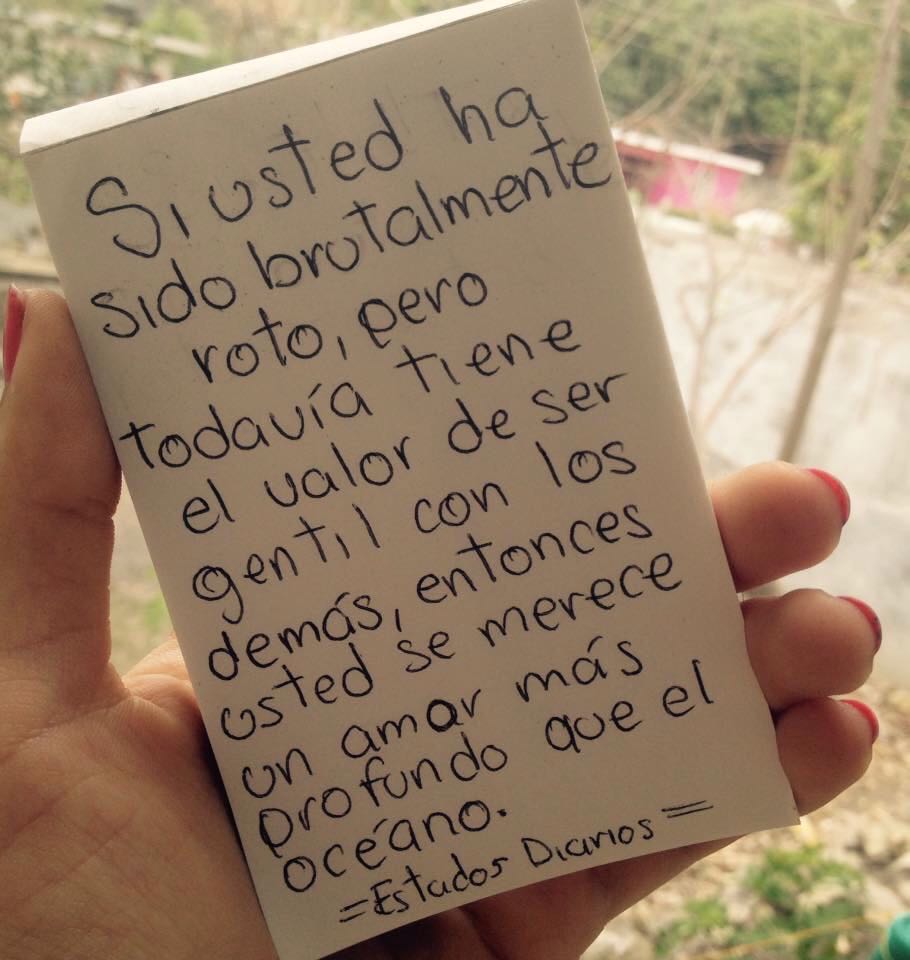 Si usted ha
sido brutalmente
roto, pero
todavía tiene
el valor de ser
gentil con los
demás, entonces
usted se merece
un amar más
profundo que el
océano.
=Estados Diarios=